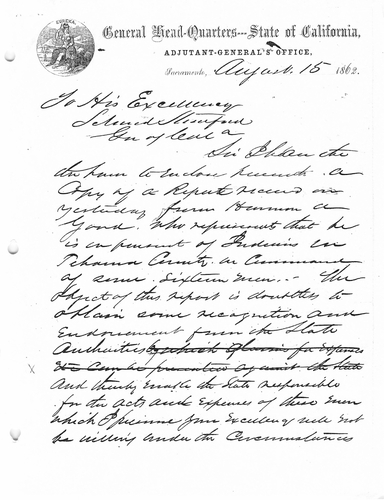 EUREKA
General Head-Quarters---State of California,
ADJUTANT-GENERAL'S OFFICE,
Sacramento, August 15 1862.
To His Excellency
Leland Stanford
Gov of Cala
Sir I have the
honor to Enclose herewith a
Copy of a Report received on
yesterday from Harmon A
Good. who represents that he
is in pursuit of Indians in
Tehama County in Command
of some sixteen men. - The
object of this report is doubtless to
obtain some recognition and
Endorsement from the State
Authorities by which claims for Expenses
&c can be presented against the State
X
and thereby Enable the State responsible
for the acts and Expenses of these men
which I presume your Excellency will not
be willing under the Circumstances